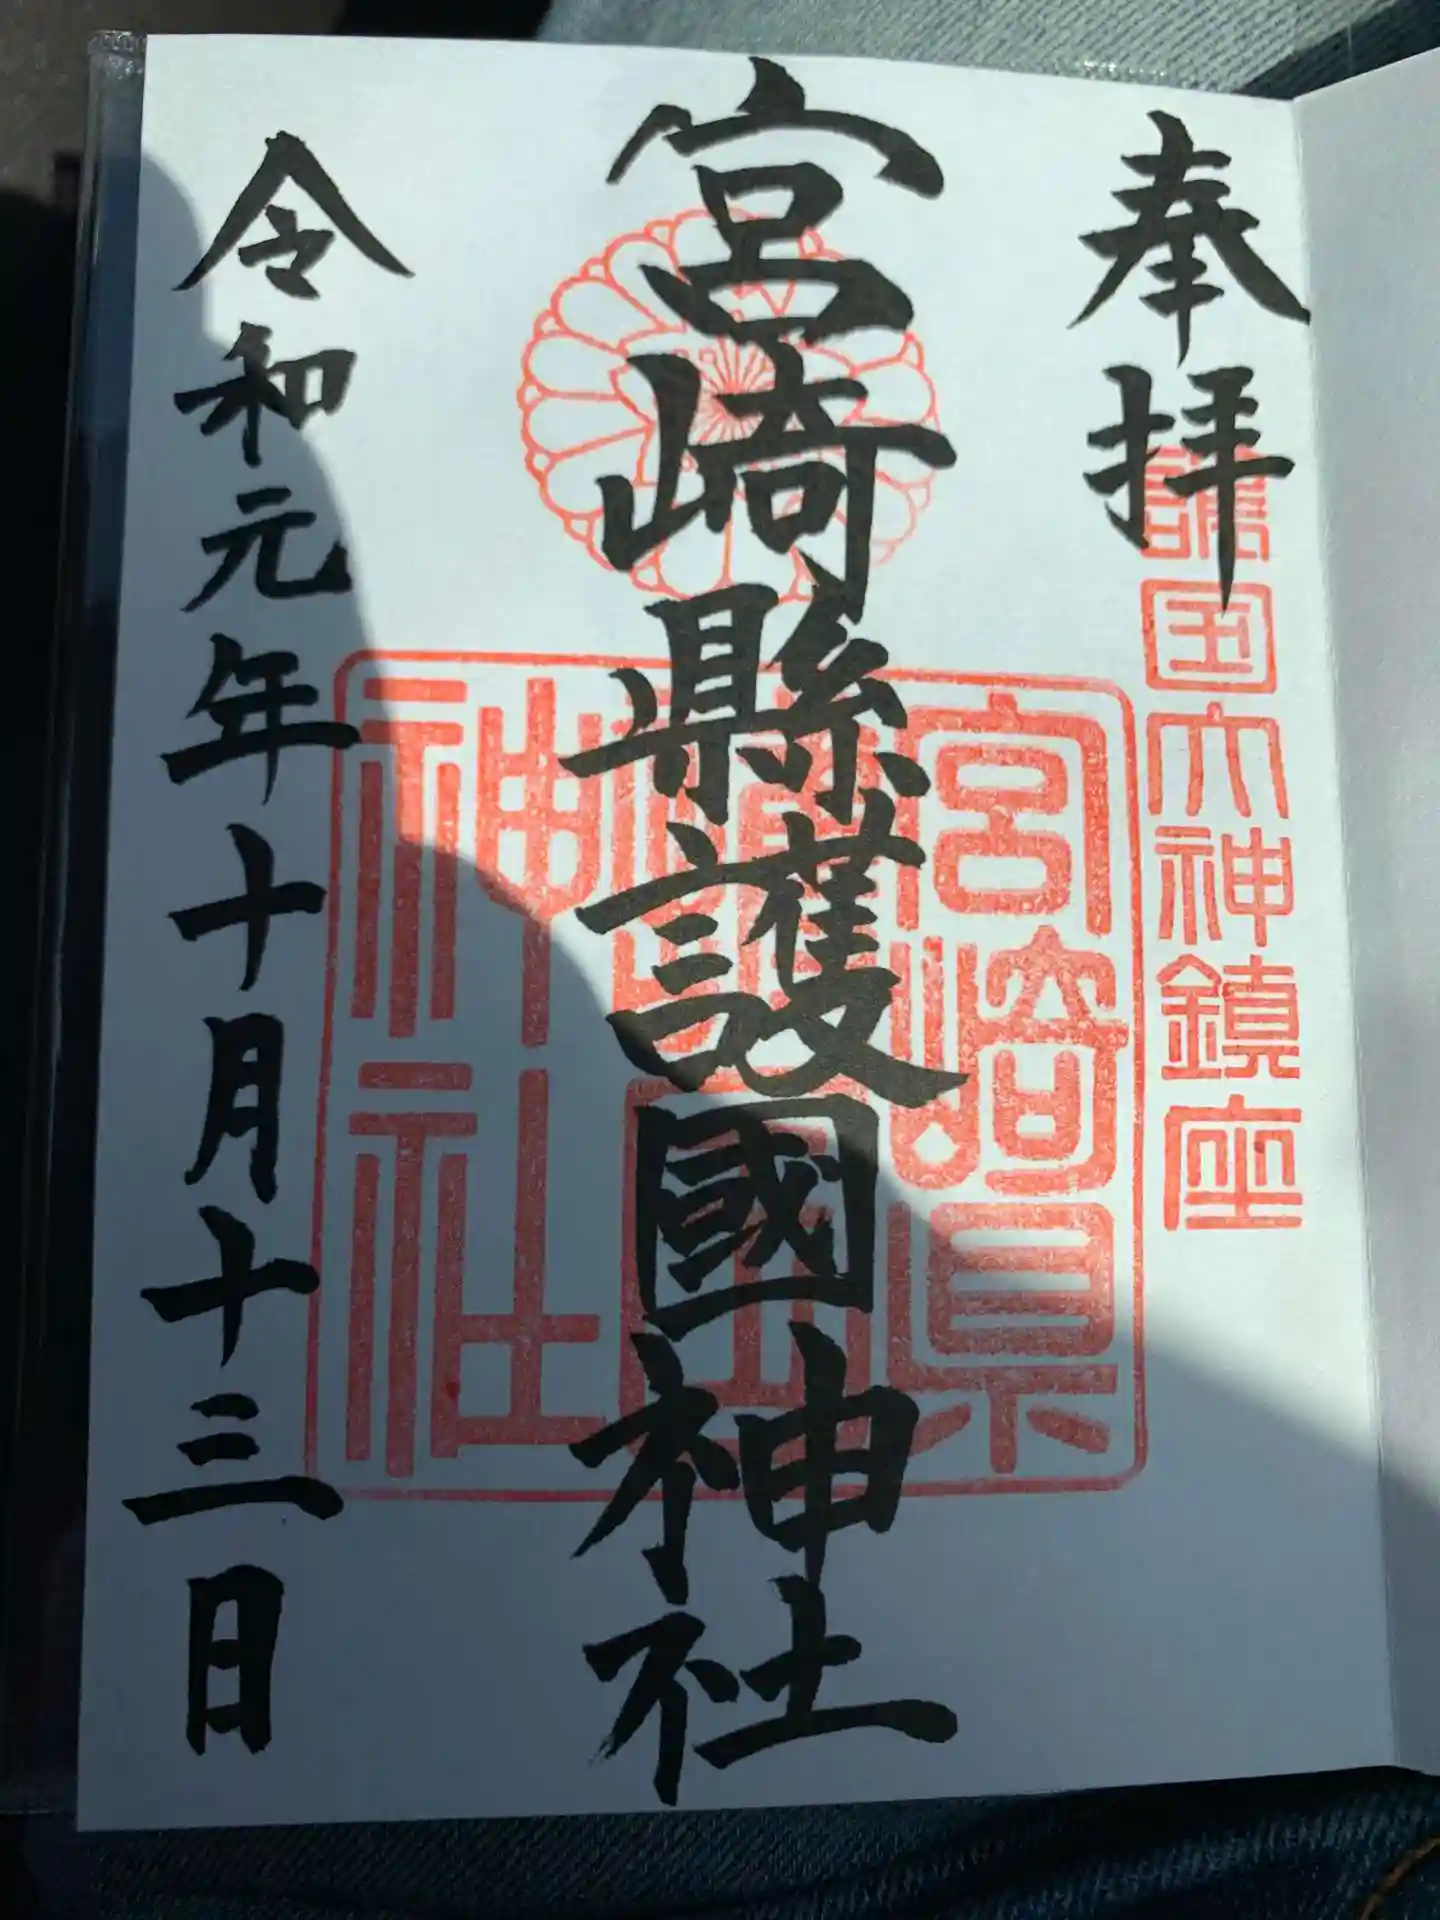 奉拝
護国大神鎮座
宮崎縣護國神社
宮崎県
護国
神社
令和元年十月十三日